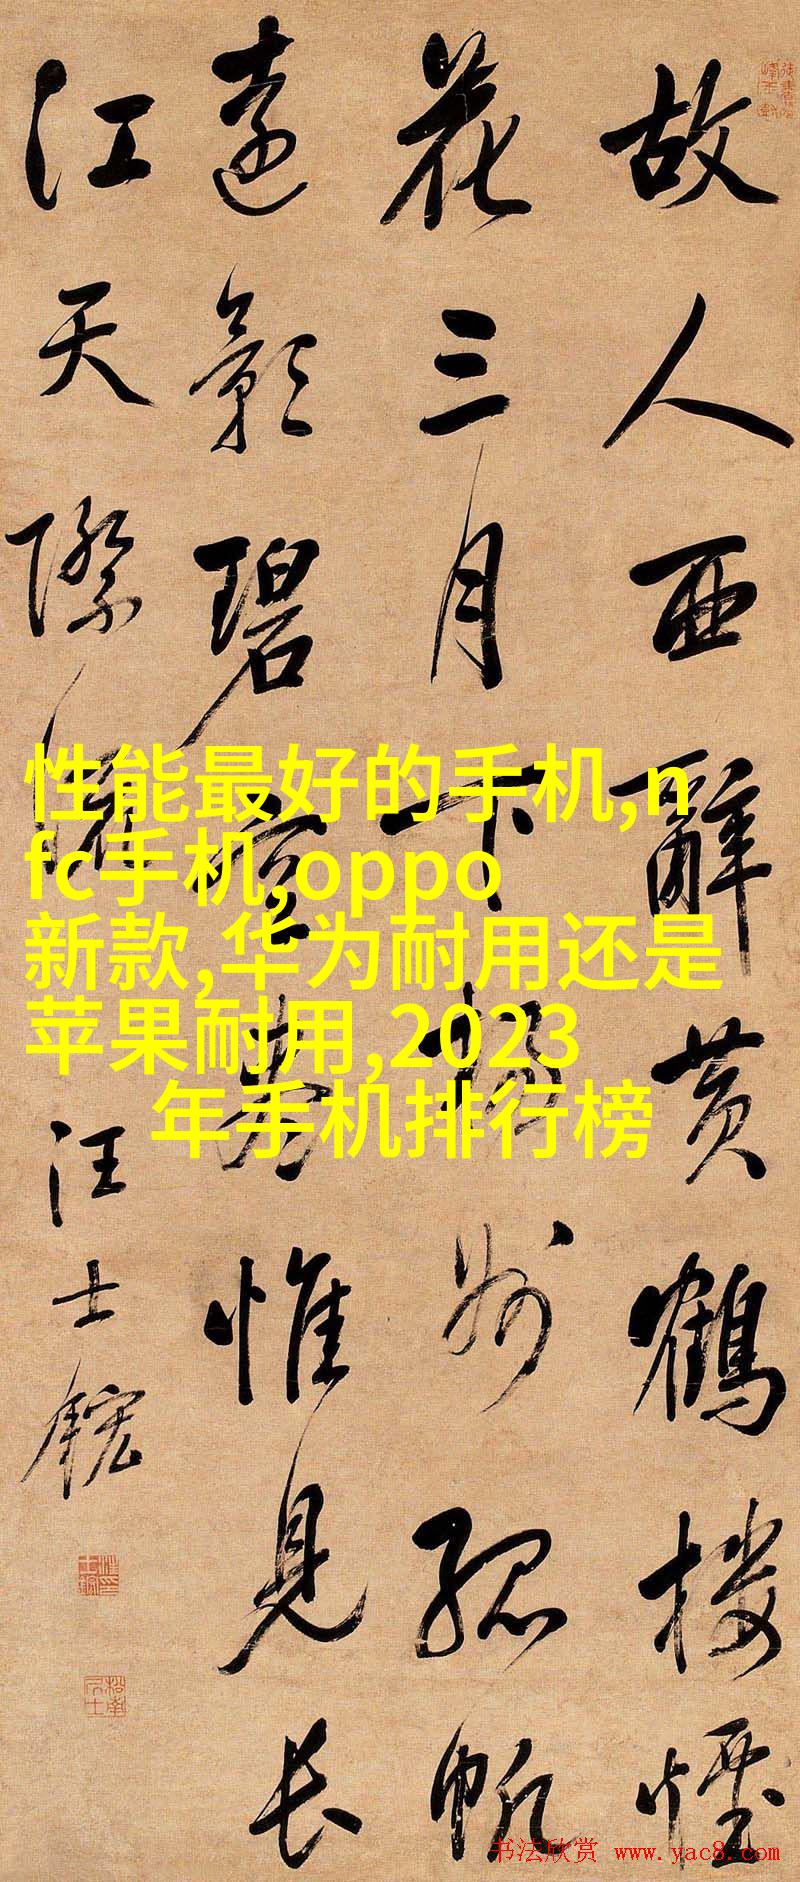 故人西辭黄鶴楼煙
花三月下揚州孤帆
遠影碧空盡惟見長
江天際流
汪士鋐
性能最好的手机,n
fc手机,oppo
新款,华为耐用还是
苹果耐用,2023
年手机排行榜
书法欣赏 www.yac8.com